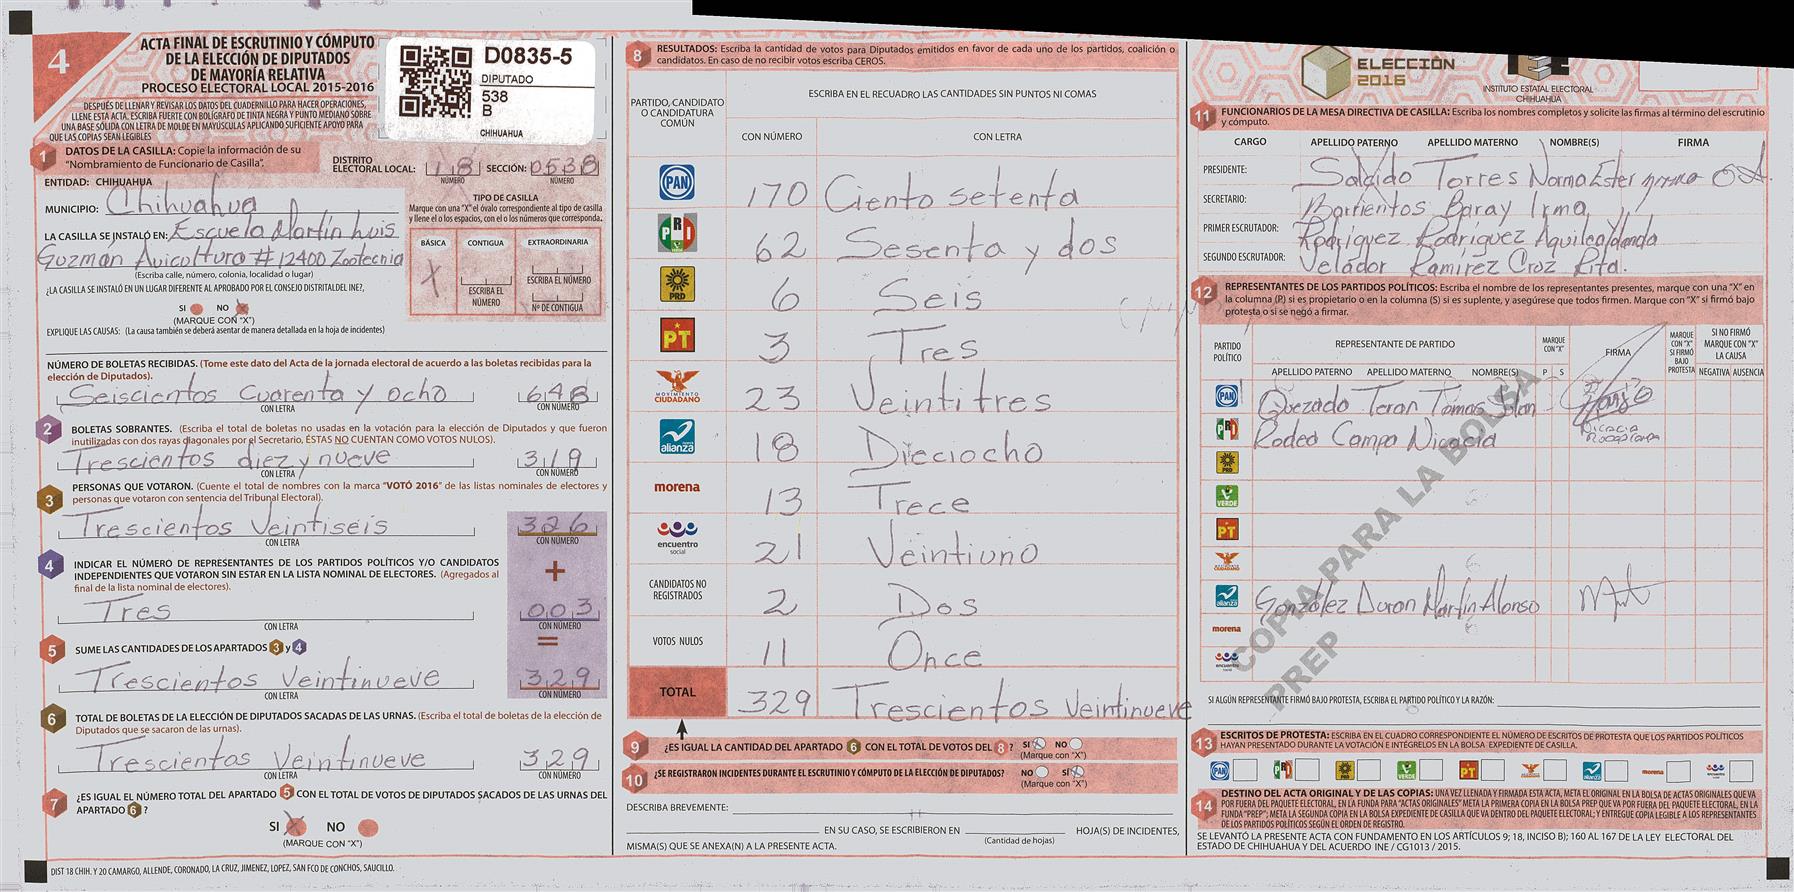 4
ACTA FINAL DE ESCRUTINIO Y CÓMPUTO
DE LA ELECCIÓN DE DIPUTADOS
DE MAYORÍA RELATIVA
PROCESO ELECTORAL LOCAL 2015-2016
DESPUÉS DE LLENAR Y REVISAR LOS DATOS DEL CUADERNILLO PARA HACER OPERACIONES,
LLENE ESTA ACTA. ESCRIBA FUERTE CON BOLÍGRAFO DE TINTA NEGRA Y PUNTO MEDIANO SOBRE
UNA BASE SÓLIDA CON LETRA DE MOLDE EN MAYÚSCULAS APLICANDO SUFICIENTE APOYO PARA
QUE LAS COPIAS SEAN LEGIBLES
D0835-5
DIPUTADO
538
B
CHIHUAHUA
1 DATOS DE LA CASILLA: Copie la información de su
"Nombramiento de Funcionario de Casilla".
DISTRITO
ELECTORAL LOCAL: 18 SECCIÓN: 0538
NÚMERO NÚMERO
ENTIDAD: CHIHUAHUA
MUNICIPIO: Chihuahua
LA CASILLA SE INSTALÓ EN: Escuela Martín Luis
Guzmán Avicultura # 12400 Zootecnia
(Escriba calle, número, colonia, localidad o lugar)
¿LA CASILLA SE INSTALÓ EN UN LUGAR DIFERENTE AL APROBADO POR EL CONSEJO DISTRITAL DEL INE?,
SI NO X
(MARQUE CON "X")
EXPLIQUE LAS CAUSAS: (La causa también se deberá asentar de manera detallada en la hoja de incidentes)
TIPO DE CASILLA
Marque con una "X" el óvalo correspondiente al tipo de casilla
y llene el o los espacios, con el o los números que corresponda.
BÁSICA CONTIGUA EXTRAORDINARIA
X
ESCRIBA EL NÚMERO
ESCRIBA EL NÚMERO
Nº DE CONTIGUA
NÚMERO DE BOLETAS RECIBIDAS. (Tome este dato del Acta de la jornada electoral de acuerdo a las boletas recibidas para la
elección de Diputados).
Seiscientos Cuarenta y ocho 648
CON LETRA CON NÚMERO
2 BOLETAS SOBRANTES. (Escriba el total de boletas no usadas en la votación para la elección de Diputados y que fueron
inutilizadas con dos rayas diagonales por el Secretario, ÉSTAS NO CUENTAN COMO VOTOS NULOS).
Trescientos diez y nueve 319
CON LETRA CON NÚMERO
3 PERSONAS QUE VOTARON. (Cuente el total de nombres con la marca "VOTÓ 2016" de las listas nominales de electores y
personas que votaron con sentencia del Tribunal Electoral).
Trescientos Veintiseis 326
CON LETRA CON NÚMERO
+
4 INDICAR EL NÚMERO DE REPRESENTANTES DE LOS PARTIDOS POLÍTICOS Y/O CANDIDATOS
INDEPENDIENTES QUE VOTARON SIN ESTAR EN LA LISTA NOMINAL DE ELECTORES. (Agregados al
final de la lista nominal de electores).
Tres 003
CON LETRA CON NÚMERO
=
5 SUME LAS CANTIDADES DE LOS APARTADOS 3 y 4
Trescientos Veintinueve 329
CON LETRA CON NÚMERO
6 TOTAL DE BOLETAS DE LA ELECCIÓN DE DIPUTADOS SACADAS DE LAS URNAS. (Escriba el total de boletas de la elección de
Diputados que se sacaron de las urnas).
Trescientos Veintinueve 329
CON LETRA CON NÚMERO
7 ¿ES IGUAL EL NÚMERO TOTAL DEL APARTADO 5 CON EL TOTAL DE VOTOS DE DIPUTADOS SACADOS DE LAS URNAS DEL
APARTADO 6?
SI X NO
(MARQUE CON "X")
DIST 18 CHIH. Y 20 CAMARGO, ALLENDE, CORONADO, LA CRUZ, JIMENEZ, LOPEZ, SAN FCO DE CONCHOS, SAUCILLO.
8 RESULTADOS: Escriba la cantidad de votos para Diputados emitidos en favor de cada uno de los partidos, coalición o
candidatos. En caso de no recibir votos escriba CEROS.
PARTIDO, CANDIDATO
O CANDIDATURA
COMÚN
ESCRIBA EN EL RECUADRO LAS CANTIDADES SIN PUNTOS NI COMAS
CON NÚMERO CON LETRA
PAN 170 Ciento setenta
PRI VERDE 62 Sesenta y dos
PRD 6 Seis
PT 3 Tres
MOVIMIENTO CIUDADANO 23 Veintitres
alianza 18 Dieciocho
morena 13 Trece
encuentro social 21 Veintiuno
CANDIDATOS NO
REGISTRADOS 2 Dos
VOTOS NULOS 11 Once
TOTAL 329 Trescientos Veintinueve
9 ¿ES IGUAL LA CANTIDAD DEL APARTADO 6 CON EL TOTAL DE VOTOS DEL 8? SI X NO
(Marque con "X")
10 ¿SE REGISTRARON INCIDENTES DURANTE EL ESCRUTINIO Y CÓMPUTO DE LA ELECCIÓN DE DIPUTADOS? NO SÍ X
(Marque con "X")
DESCRIBA BREVEMENTE:
EN SU CASO, SE ESCRIBIERON EN HOJA(S) DE INCIDENTES,
(Cantidad de hojas)
MISMA(S) QUE SE ANEXA(N) A LA PRESENTE ACTA.
ELECCIÓN
2016
IEE
INSTITUTO ESTATAL ELECTORAL
CHIHUAHUA
11 FUNCIONARIOS DE LA MESA DIRECTIVA DE CASILLA: Escriba los nombres completos y solicite las firmas al término del escrutinio
y cómputo.
CARGO APELLIDO PATERNO APELLIDO MATERNO NOMBRE(S) FIRMA
PRESIDENTE: Salcido Torres Norma Ester
SECRETARIO: Barrientos Baray Irma
PRIMER ESCRUTADOR: Rodríguez Rodríguez Aquilea Yolanda
SEGUNDO ESCRUTADOR: Velador Ramírez Cruz Rita.
12 REPRESENTANTES DE LOS PARTIDOS POLÍTICOS: Escriba el nombre de los representantes presentes, marque con una "X" en
la columna (P) si es propietario o en la columna (S) si es suplente, y asegúrese que todos firmen. Marque con "X" si firmó bajo
protesta o si se negó a firmar.
PARTIDO
POLÍTICO
REPRESENTANTE DE PARTIDO
APELLIDO PATERNO APELLIDO MATERNO NOMBRE(S)
MARQUE CON "X"
P S
FIRMA
MARQUE CON "X" SI FIRMÓ BAJO PROTESTA
SI NO FIRMÓ MARQUE CON "X" LA CAUSA
NEGATIVA AUSENCIA
PAN Quezada Teran Tomas
PRI Rodeo Campo Nicacia
PRD
VERDE
PT
MOVIMIENTO CIUDADANO
alianza González Duron Martín Alonso
morena
encuentro social
COPIA PARA LA BOLSA
PREP
SI ALGÚN REPRESENTANTE FIRMÓ BAJO PROTESTA, ESCRIBA EL PARTIDO POLÍTICO Y LA RAZÓN:
13 ESCRITOS DE PROTESTA: ESCRIBA EN EL CUADRO CORRESPONDIENTE EL NÚMERO DE ESCRITOS DE PROTESTA QUE LOS PARTIDOS POLÍTICOS
HAYAN PRESENTADO DURANTE LA VOTACIÓN E INTÉGRELOS EN LA BOLSA EXPEDIENTE DE CASILLA.
PAN PRI PRD VERDE PT alianza morena
14 DESTINO DEL ACTA ORIGINAL Y DE LAS COPIAS: UNA VEZ LLENADA Y FIRMADA ESTA ACTA, META EL ORIGINAL EN LA BOLSA DE ACTAS ORIGINALES QUE VA
POR FUERA DEL PAQUETE ELECTORAL, EN LA FUNDA PARA "ACTAS ORIGINALES" META LA PRIMERA COPIA EN LA BOLSA PREP QUE VA POR FUERA DEL PAQUETE ELECTORAL, EN LA
FUNDA "PREP"; META LA SEGUNDA COPIA EN LA BOLSA EXPEDIENTE DE CASILLA QUE VA DENTRO DEL PAQUETE ELECTORAL; Y ENTREGUE COPIA LEGIBLE A LOS REPRESENTANTES
DE LOS PARTIDOS POLÍTICOS SEGÚN EL ORDEN DE REGISTRO.
SE LEVANTÓ LA PRESENTE ACTA CON FUNDAMENTO EN LOS ARTÍCULOS 9; 18, INCISO B); 160 AL 167 DE LA LEY ELECTORAL DEL
ESTADO DE CHIHUAHUA Y DEL ACUERDO INE / CG1013 / 2015.